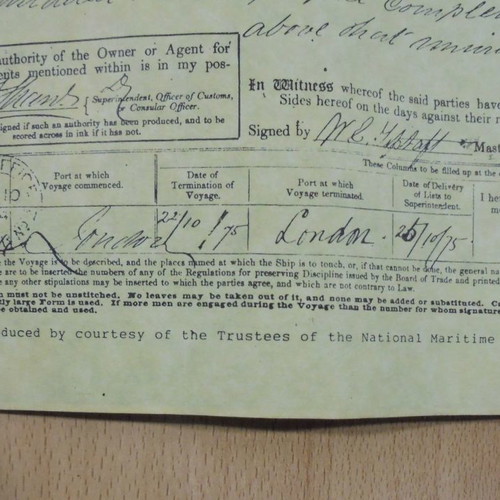 Comple
above that
authority of the Owner or Agent for
ents mentioned within is in my pos-
Superintendent, Officer of Customs,
or Consular Officer.
signed if such an authority has been produced, and to be
scored across in ink if it has not.
In Witness whereof the said parties have
Sides hereof on the days against their
Signed by
Mast
These Columns to be filled up at the
Port at which
Voyage commenced.
Date of
Termination of
Voyage.
Port at which
Voyage terminated.
Date of Delivery
of Lists to
Superintendent.
I he
London
22/10/75
London
/10/75
the Voyage is to be described, and the places named at which the Ship is to touch, or, if that cannot be done, the general na
e are to be inserted the numbers of any of the Regulations for preserving Discipline issued by the Board of Trade and printed
e any other stipulations may be inserted to which the parties agree, and which are not contrary to Law.
m must not be unstitched. No leaves may be taken out of it, and none may be added or substituted. C
ly large Form is used. If more men are engaged during the Voyage than the number for whom signature
be obtained and used.
duced by courtesy of the Trustees of the National Maritime